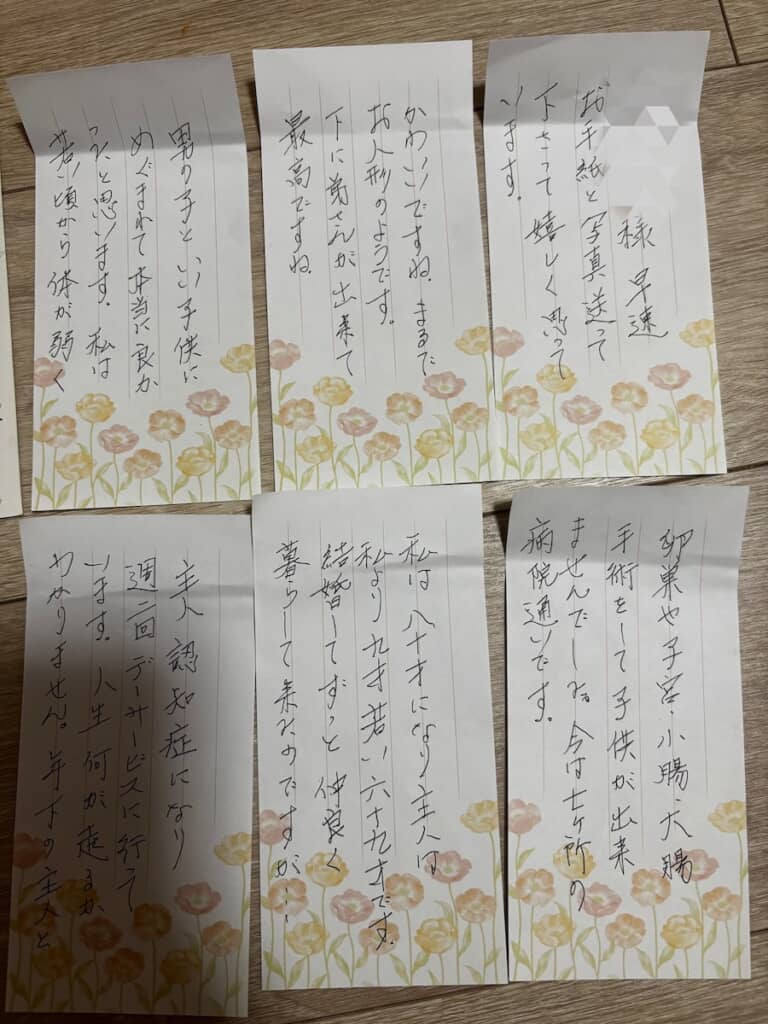 様 早速
お手紙と写真送って
下さって嬉しく思って
います。
かわいいですね。まるで
お人形のようです。
下に弟さんが出来て
最高ですね。
男の子といい子供に
めぐまれて本当に良か
ったと思います。私は
若い頃から体が弱く
卵巣や子宮・小腸・大腸
手術をして子供が出来
ませんでした。今は七ヶ所の
病院通いです。
私は八十才になり主人は
私より九才若い六十九才です。
結婚してずっと仲良く
暮らして来たのですが…
主人認知症になり
週二回デーサービスに行って
います。人生何が走るか
わかりません。年下の主人と